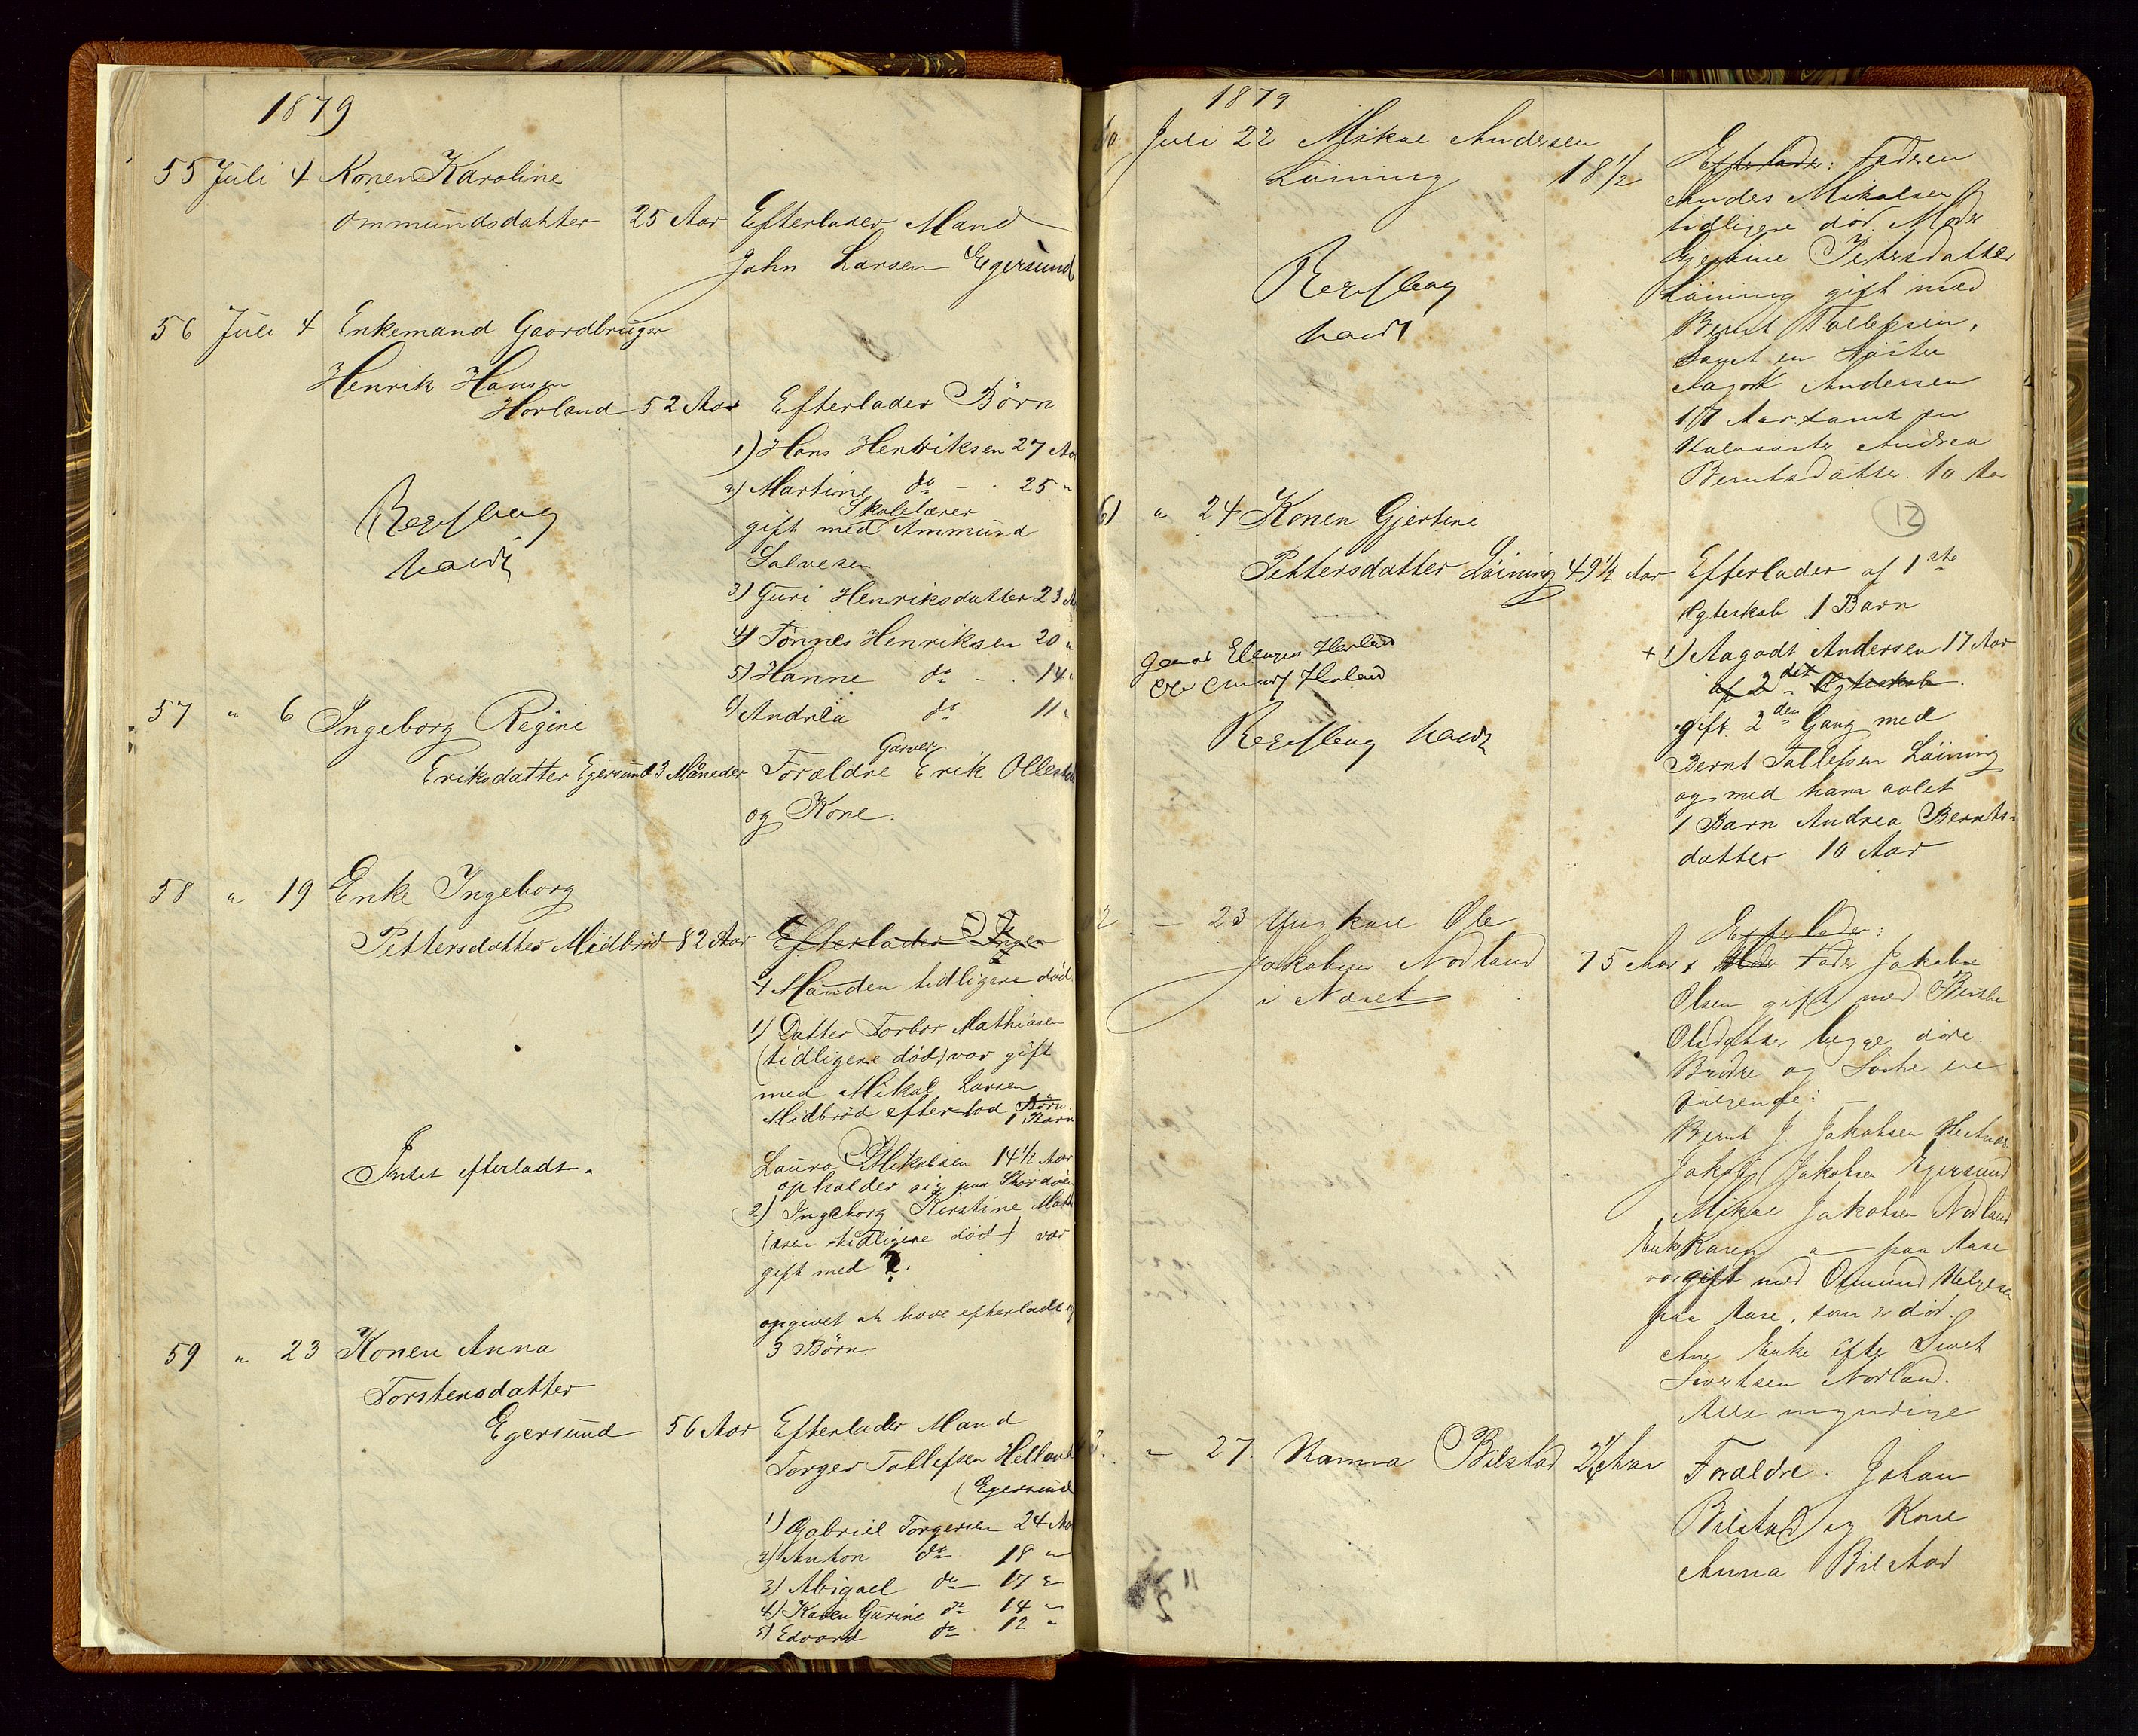 1879
55 Juli 4 Konen Karoline
Ommundsdatter 25 Aar Efterlader Mand
John Larsen Egersund
56 Juli 4 Enkemand Gaardbruger
Henrik Hansen
Horland 52 Aar Efterlader Börn
1) Hans Henriksen 27 Aar
2) Martine do - . 25 "
Skolelærer
gift med Ammund
Salvesen
3) Guri Henriksdatter 23 A
4) Tönnes Henriksen 20 "
5) Hanne do - . 14 "
6) Andrea do 11 "
57 " 6 Ingeborg Regine
Garver
Eriksdatter Egersund 3 Måneder Forældre Erik Ollestad
og Kone.
58 " 19 Enke Ingeborg
Pettersdatter Midbröd 82 Aar Efterlader Ingen
Manden tidligere död
1) Datter Torbor Mathiasen
(tidligere död) var gift
med Mikal Larsen
Midbröd efterlod Börn
1 Barn
Intet efterladt.
Laura Mikalsen 14½ Aar
opholder sig paa
2) Ingeborg Kirstine Math
iasen tidligere död) var
gift med ?.
opgivet at have efterladt
3 Börn.
59 " 23 Konen Anna
Torstensdatter
Egersund 56 Aar Efterlader Mand
Torger Tollefsen Helland
(Egersund
1) Gabriel Torgersen 24 Aar
2) Anton do 18 "
3) Abigael do 17 "
4) Karen Gurine do 14 "
5) Edvard do 12 "
1879
60. Juli 22 Mikal Andersen
Löining 18½
Efterlader: Faderen
Andes Mikalsen
tidligere död. Moder
Gjertine Petersdatter
Löining gift med
Bernt Tollefsen,
samt en Söster
Aagodt Andersen
17 Aar samt en
Halvsöster Andrea
Berntsdatter. 10 Aar
12
61 " 24 Konen Gjertine
Pettersdatter Löining 49½ Aar Efterlader af 1ste
Egteskab 1 Barn
+ 1) Aagodt Andersen 17 Aar
af 2det Egteskab.
gift 2den Gang med
Bernt Tollefsen Löining
og med ham avlet
1 Barn Andrea Bernts-
datter 10 Aar
62 - 23 Ungkarl Ole
Jakobsen Nodland
i Næset
75 Aar
Efterlader:
Fader Jakob
Olsen gift med Berthe
Olsdatter begge döde.
Brödre og Söstre ere
fölgende:
Bernt J. Jakobsen
Jakob Jakobsen Egersund
Mikal Jakobsen Nodland
Enke Karen " paa Aase
var gift med Osmund Helgesen
paa Aase, som er död.
Ane Enke efter Sivert
Sivertsen Nodland.
Alle myndige
63. " 27. Hanna Bilstad 2¼ Aar Forældre. Johan
Bilstad og Kone
Anna Bilstad